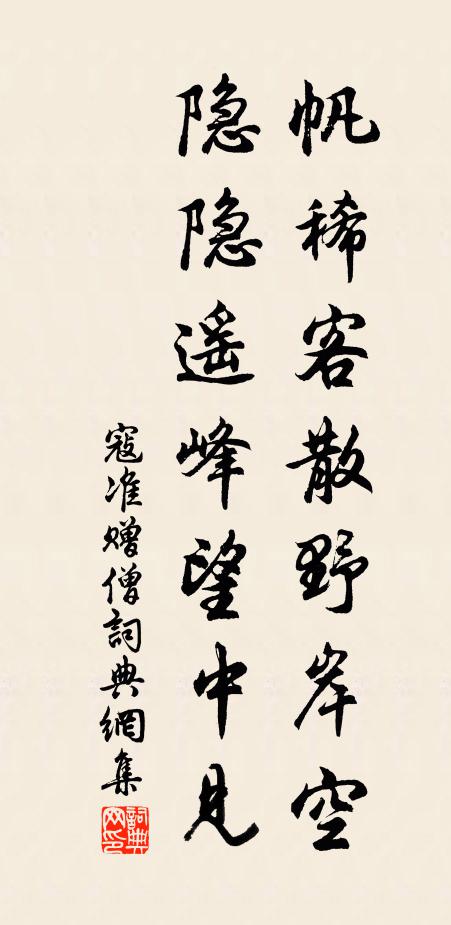 帆稀客散野岸空
隐隐遥峰望中见
寇准赠僧詞典網集
詞典网印